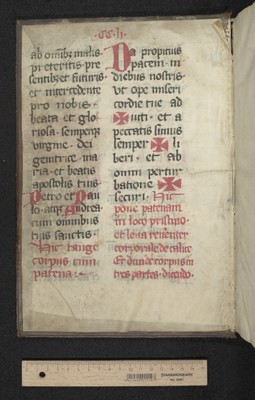 ·cc·li·
ab omnibus malis
preteritis pre
sentibus et futuris
et intercedente
pro nobis
beata et glo
riosa semperque
virgine dei
genitrice ma
ria et beatis
apostolis tuis
Petro et Pau
lo atque Andrea
cum omnibus
tuis sanctis
Hic tangc
corpus cum
patena
Da propitius
pacem in
diebus nostris
Vt ope miseri
cordie tue ad
iuti et a
peccatis simus
semper li
beri et ab
omni pertur
batione
securi Hic
pone patenam
in loco pristino
et leua reuerenter
corporale de calice
Et diuide corpus in
tres partes dicendo